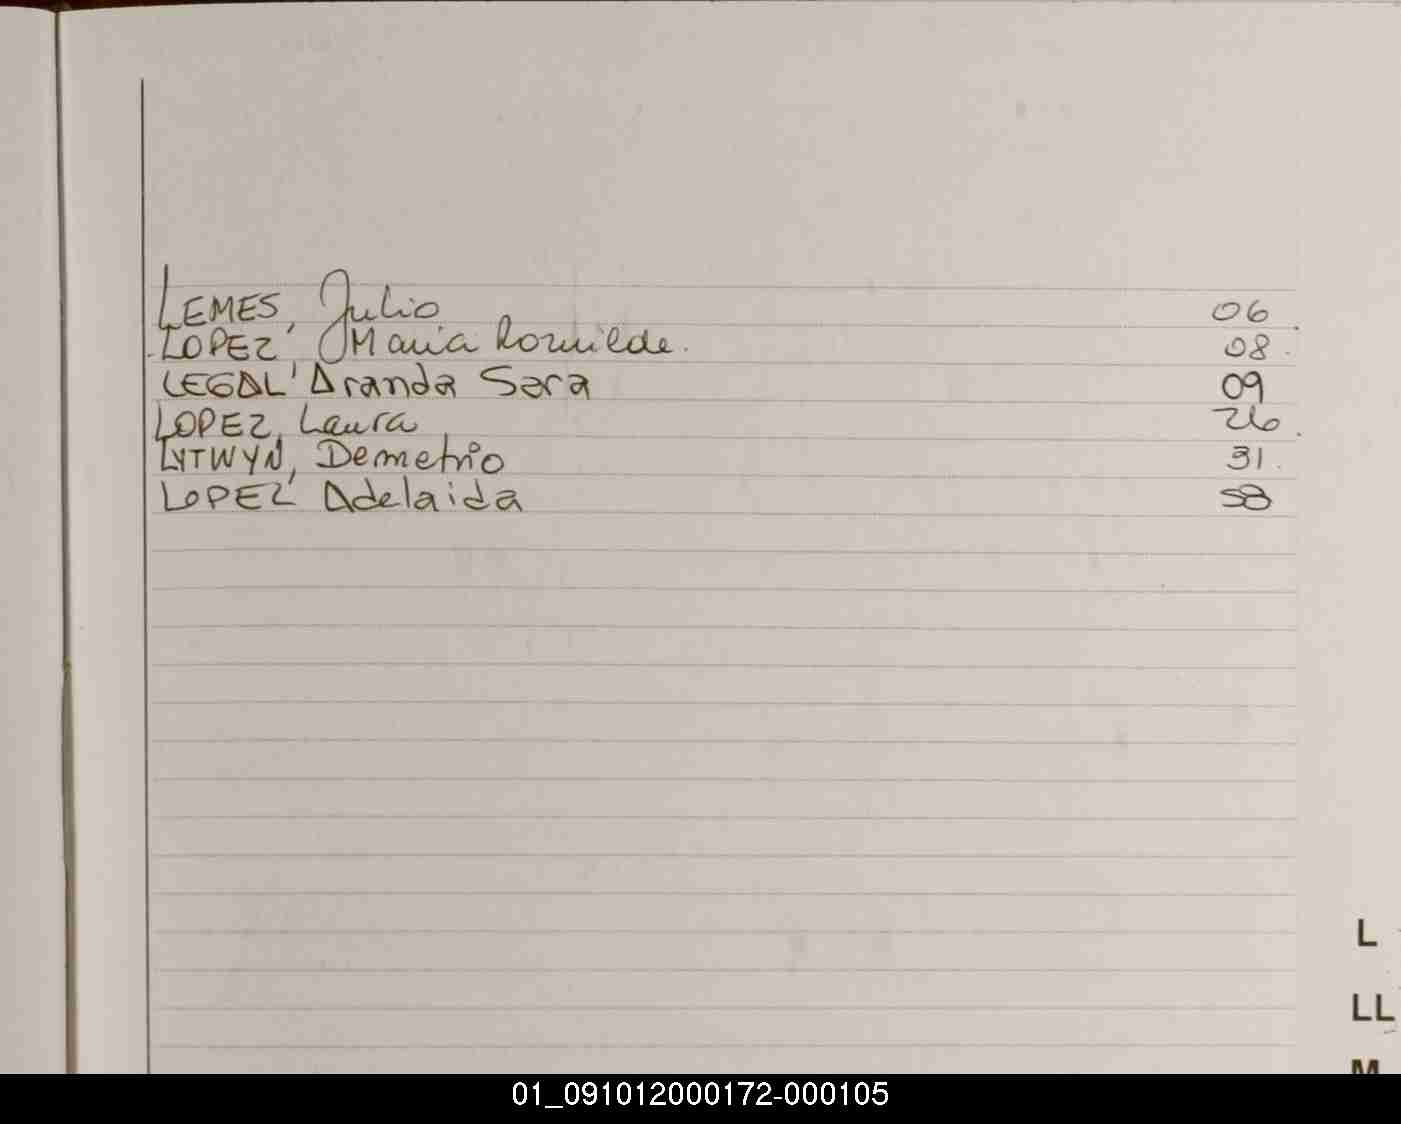 LEMES, Julio 06
LOPEZ, Maria Romilde. 08
LEGAL, Aranda Sara 09
LOPEZ, Laura 26
LYTWYN, Demetrio 31
LOPEZ, Adelaida 58
L
LL
M
01_091012000172-000105